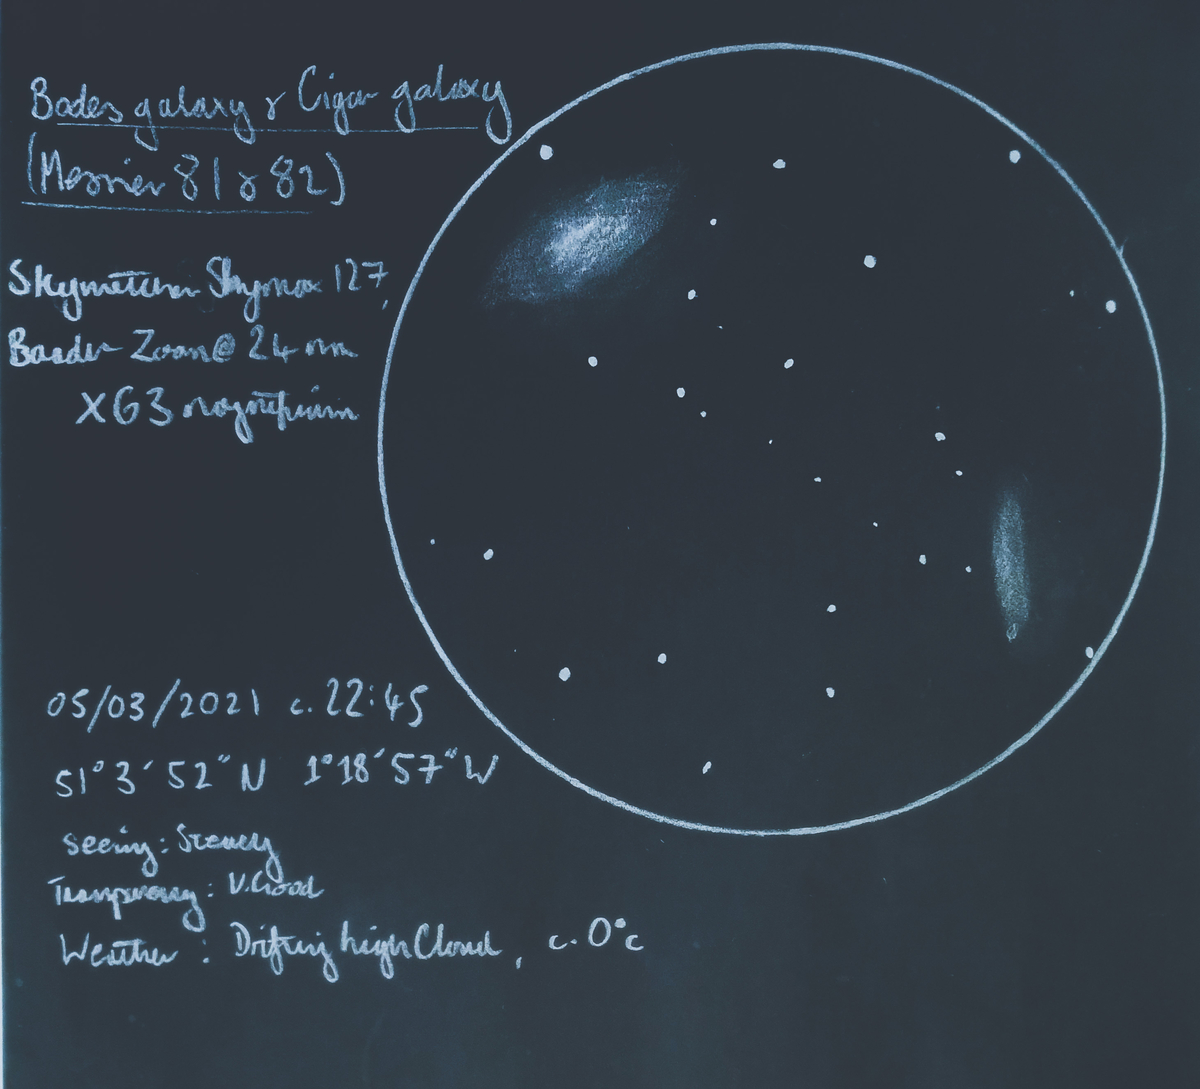 Bodes galaxy & Cigar galaxy
(Messier 81 & 82)
Skywatcher Skymax 127,
Baader Zoom @ 24 mm
X63 magnification
05/03/2021 c. 22:45
51° 3′ 52″ N 1° 18′ 57″ W
Seeing: Steady
Transparency: V. Good
Weather: Drifting high Cloud, c. 0°c